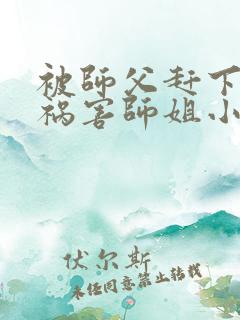 被師父赶下
祸害師姐小
伏尔斯
未经同意禁止转载